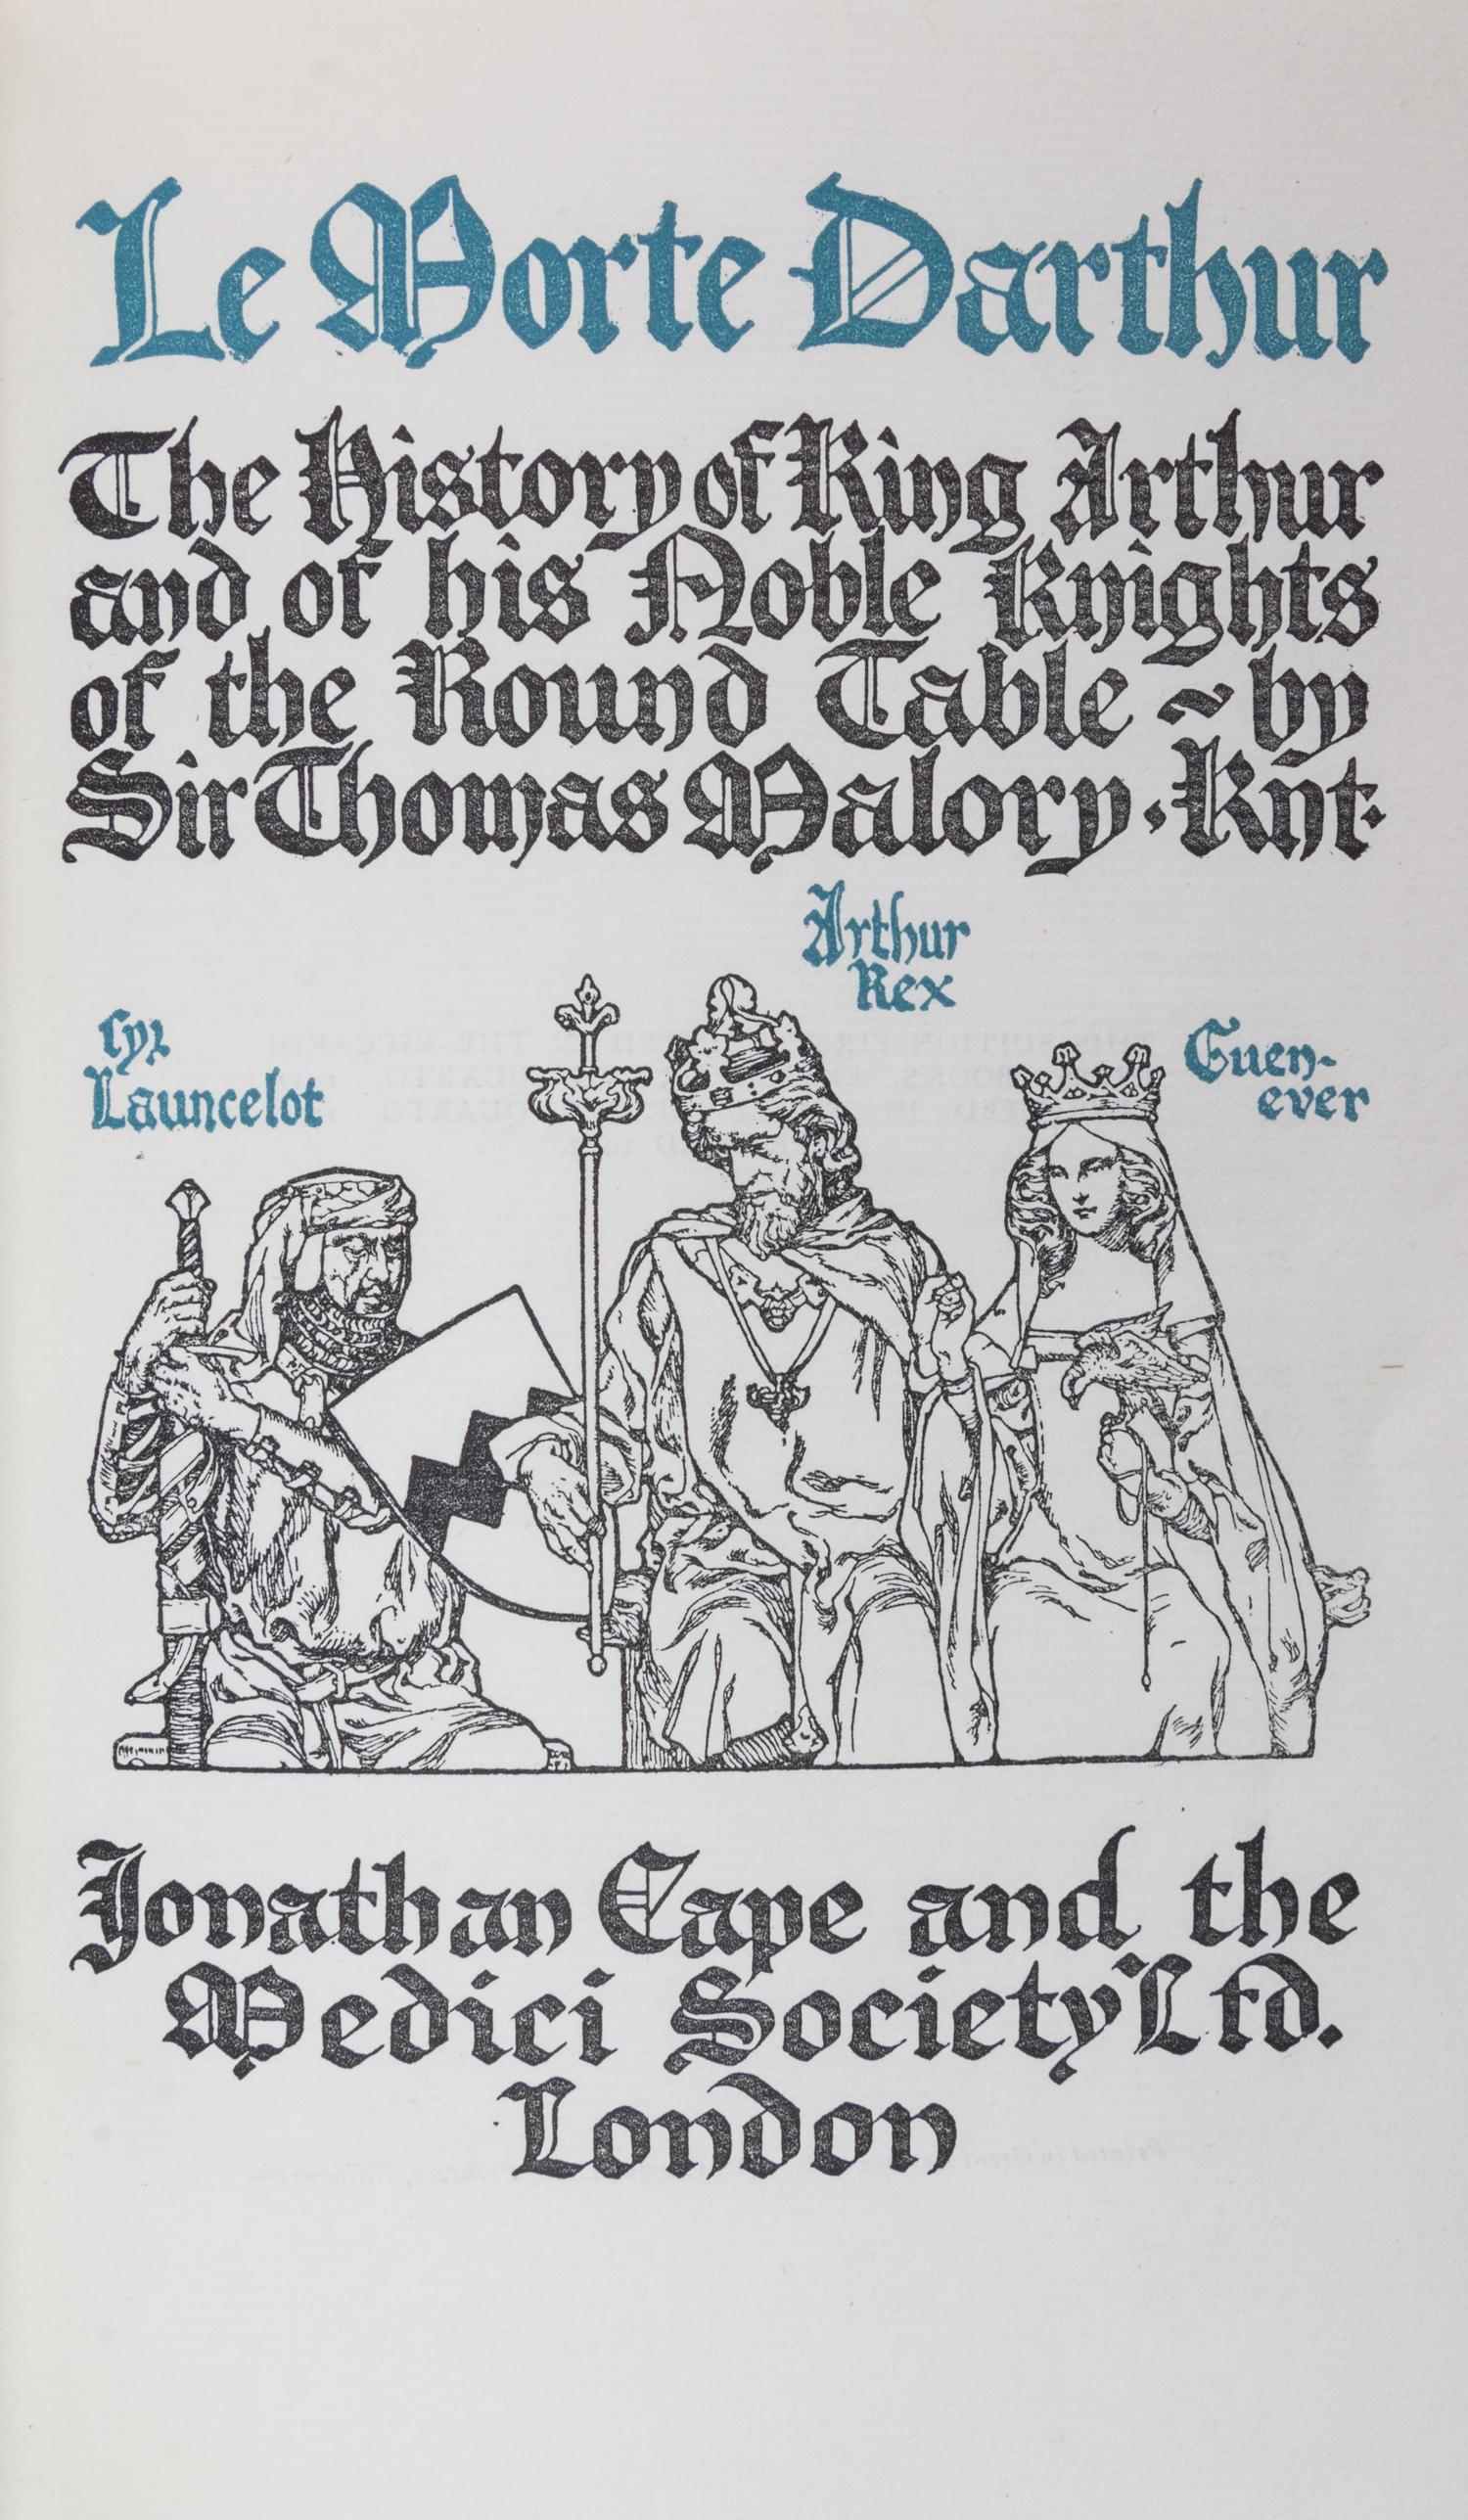 Le Morte Darthur
The History of King Arthur
and of his Noble Knights
of the Round Table ~ by
Sir Thomas Malory · Knt·
Arthur
Rex
Syr
Launcelot
Guen-
ever
Jonathan Cape and the
Medici Society Ltd.
London